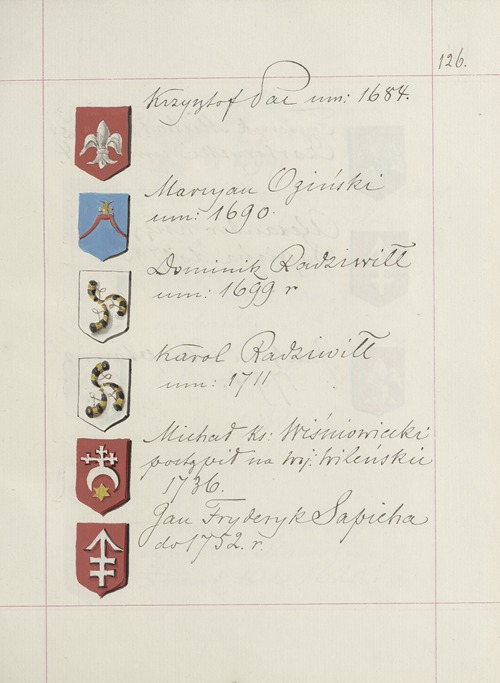 126.
Krzysztof Pac um: 1684.
Maryan Oziński
um: 1690.
Dominik Radziwiłł
um: 1699 r
Karol Radziwiłł
um: 1711
Michał Ks: Wiśniowiecki
postąpił na Wj. Wileńskie
1736.
Jan Fryderyk Sapieha
do 1752. r.